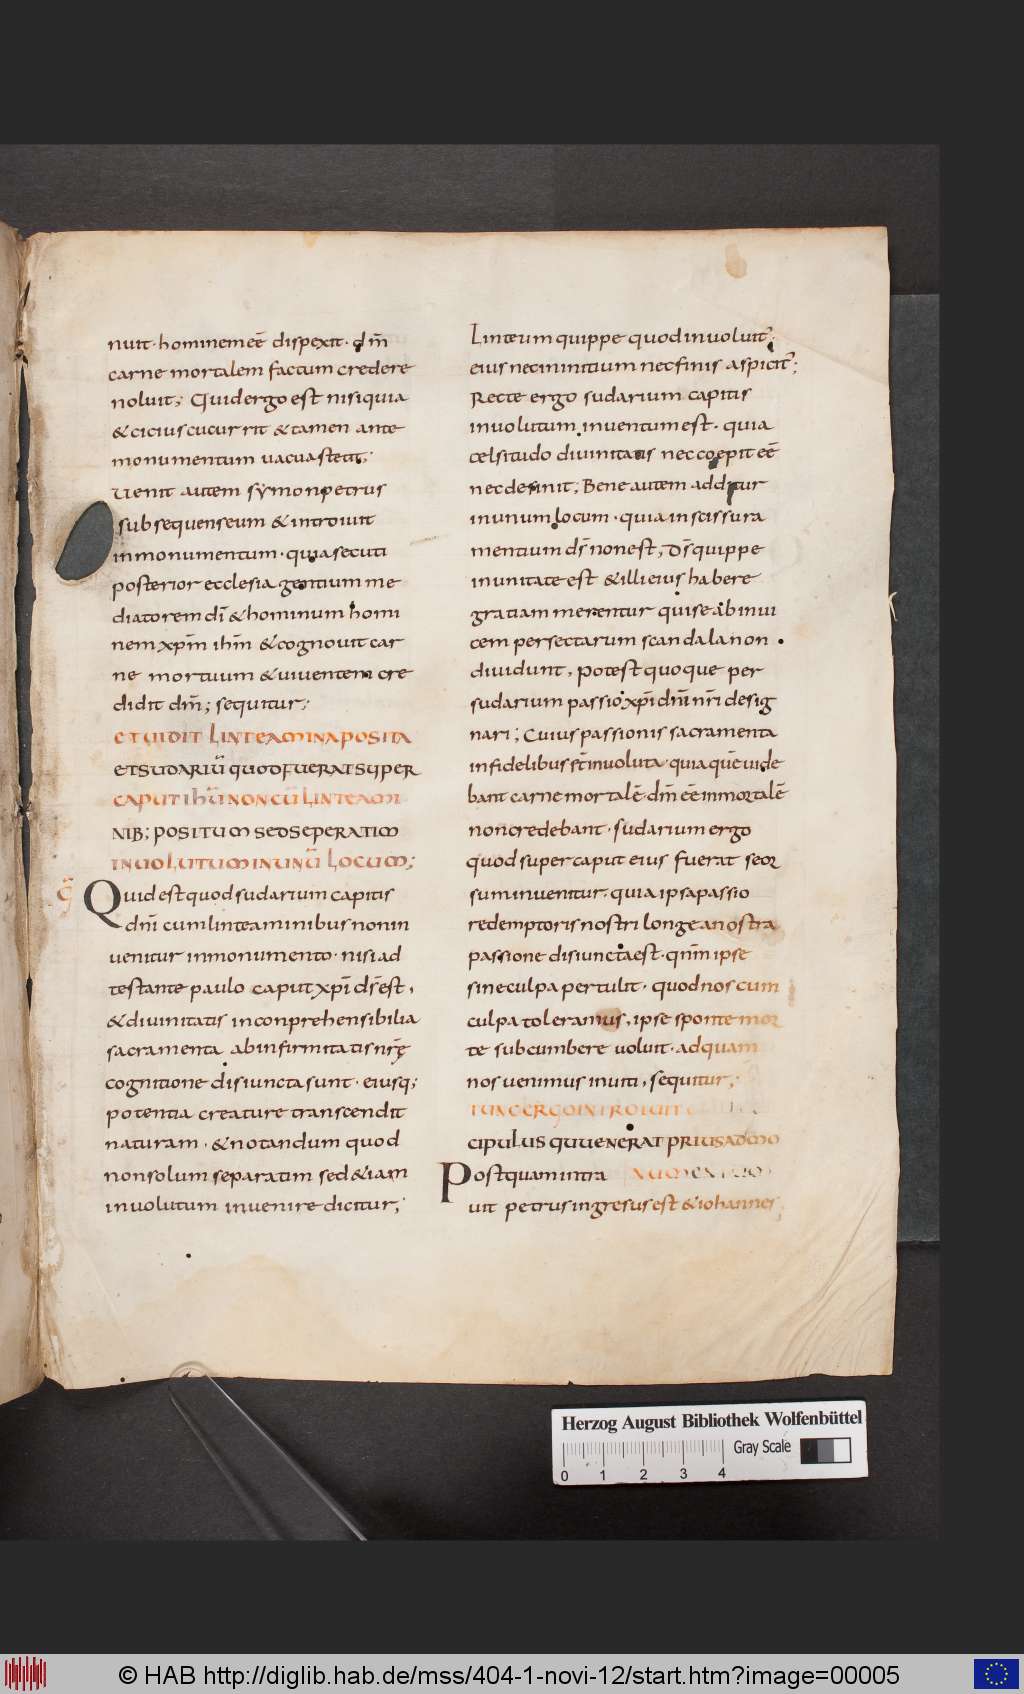 nuit · hominem eē dispexit · dm̄
carne mortalem factum credere
noluit; Quid ergo est nisi quia
& cicius cucurrit & tamen ante
monumentum uacua stetit;
Uenit autem symon petrus
subsequens eum & introiuit
in monumentum · quia secuti
posterior ecclesia gentium me
diatorem dī & hominum homi
nem xpm̄ ihm̄ & cognouit car
ne mortuum & uiuentem cre
didit dm̄; sequitur;
ET UIDIT LINTEAMINA POSITA
ET SUDARIŪ QUOD FUERAT SUPER
CAPUT IHŪ NON CŪ LINTEAMI
NIB; POSITUM SED SEPERATIM
INUOLUTUM IN UNŪ LOCUM;
Quid est quod sudarium capitis
dnī cum linteaminibus non in
uenitur in monumento · nisi ad
testante paulo caput xpī ds̄ est,
& diuinitatis inconprehensibilia
sacramenta ab infirmitatis nr̄ę
cognitione disiuncta sunt · eiusq;
potentia creature transcendit
naturam · & notandum quod
non solum separatim sed & iam
inuolutum inuenire dicitur;
Linteum quippe quod inuoluit᷑;
eius nec initium nec finis aspicit᷑;
Recte ergo sudarium capitis
inuolutum inuentum est · quia
celsitudo diuinitatis nec coepit eē
nec desinit; Bene autem additur
in unum locum · quia in scissura
mentium ds̄ non est, Ds̄ quippe
in unitate est & illi eius habere
gratiam merentur qui se ab inui
cem per sectarum scandala non
diuidunt, Potest quoque per
sudarium passio xpī dnī nrī desig
nari; Cuius passionis sacramenta
infidelibus st̄ inuoluta · quia quē uide
bant carne mortalē dm̄ eē inmortalē
non credebant · sudarium ergo
quod super caput eius fuerat seor
sum inuenitur · quia ipsa passio
redemptoris nostri longe a nostra
passione disiuncta est · qnm̄ ipse
sine culpa pertulit · quod nos cum
culpa toleramus, ipse sponte mor
te subcumbere uoluit · ad quam
nos uenimus inuiti, sequitur;
TUNC ERGO INTROIUIT
CIPULUS QUI UENERAT PRIUS AD MO
Postquam intra
uit petrus ingresus est & iohannes
Herzog August Bibliothek Wolfenbüttel
0 1 2 3 4 Gray Scale
© HAB http://diglib.hab.de/mss/404-1-novi-12/start.htm?image=00005